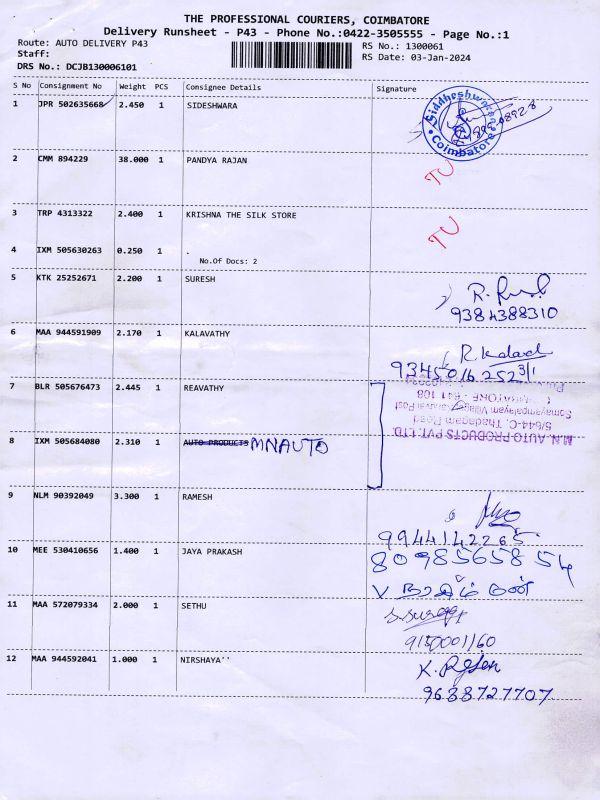 THE PROFESSIONAL COURIERS, COIMBATORE
Delivery Runsheet - P43 - Phone No.:0422-3505555 - Page No.:1
Route: AUTO DELIVERY P43
RS No.: 1300061
Staff:
RS Date: 03-Jan-2024
DRS No.: DCJB130006101
S No Consignment No Weight PCS Consignee Details Signature
1 JPR 502635668 2.450 1 SIDESHWARA
Coimbatore
2 CMM 894229 38.000 1 PANDYA RAJAN
TU
3 TRP 4313322 2.400 1 KRISHNA THE SILK STORE
TU
4 IXM 505630263 0.250 1 .
No.Of Docs: 2
5 KTK 25252671 2.200 1 SURESH
9384388310
6 MAA 944591909 2.170 1 KALAVATHY
7 BLR 505676473 2.445 1 REAVATHY
M.N. AUTO PRODUCTS PVT. LTD.
5/644-C, Thadagam Road
8 IXM 505684080 2.310 1 AUTO PRODUCTS MN AUTO
9 NLM 90392049 3.300 1 RAMESH
9944142265
10 MEE 530410656 1.400 1 JAYA PRAKASH
8098565854
11 MAA 572079334 2.000 1 SETHU
9150001160
12 MAA 944592041 1.000 1 NIRSHAYA''
9638727707